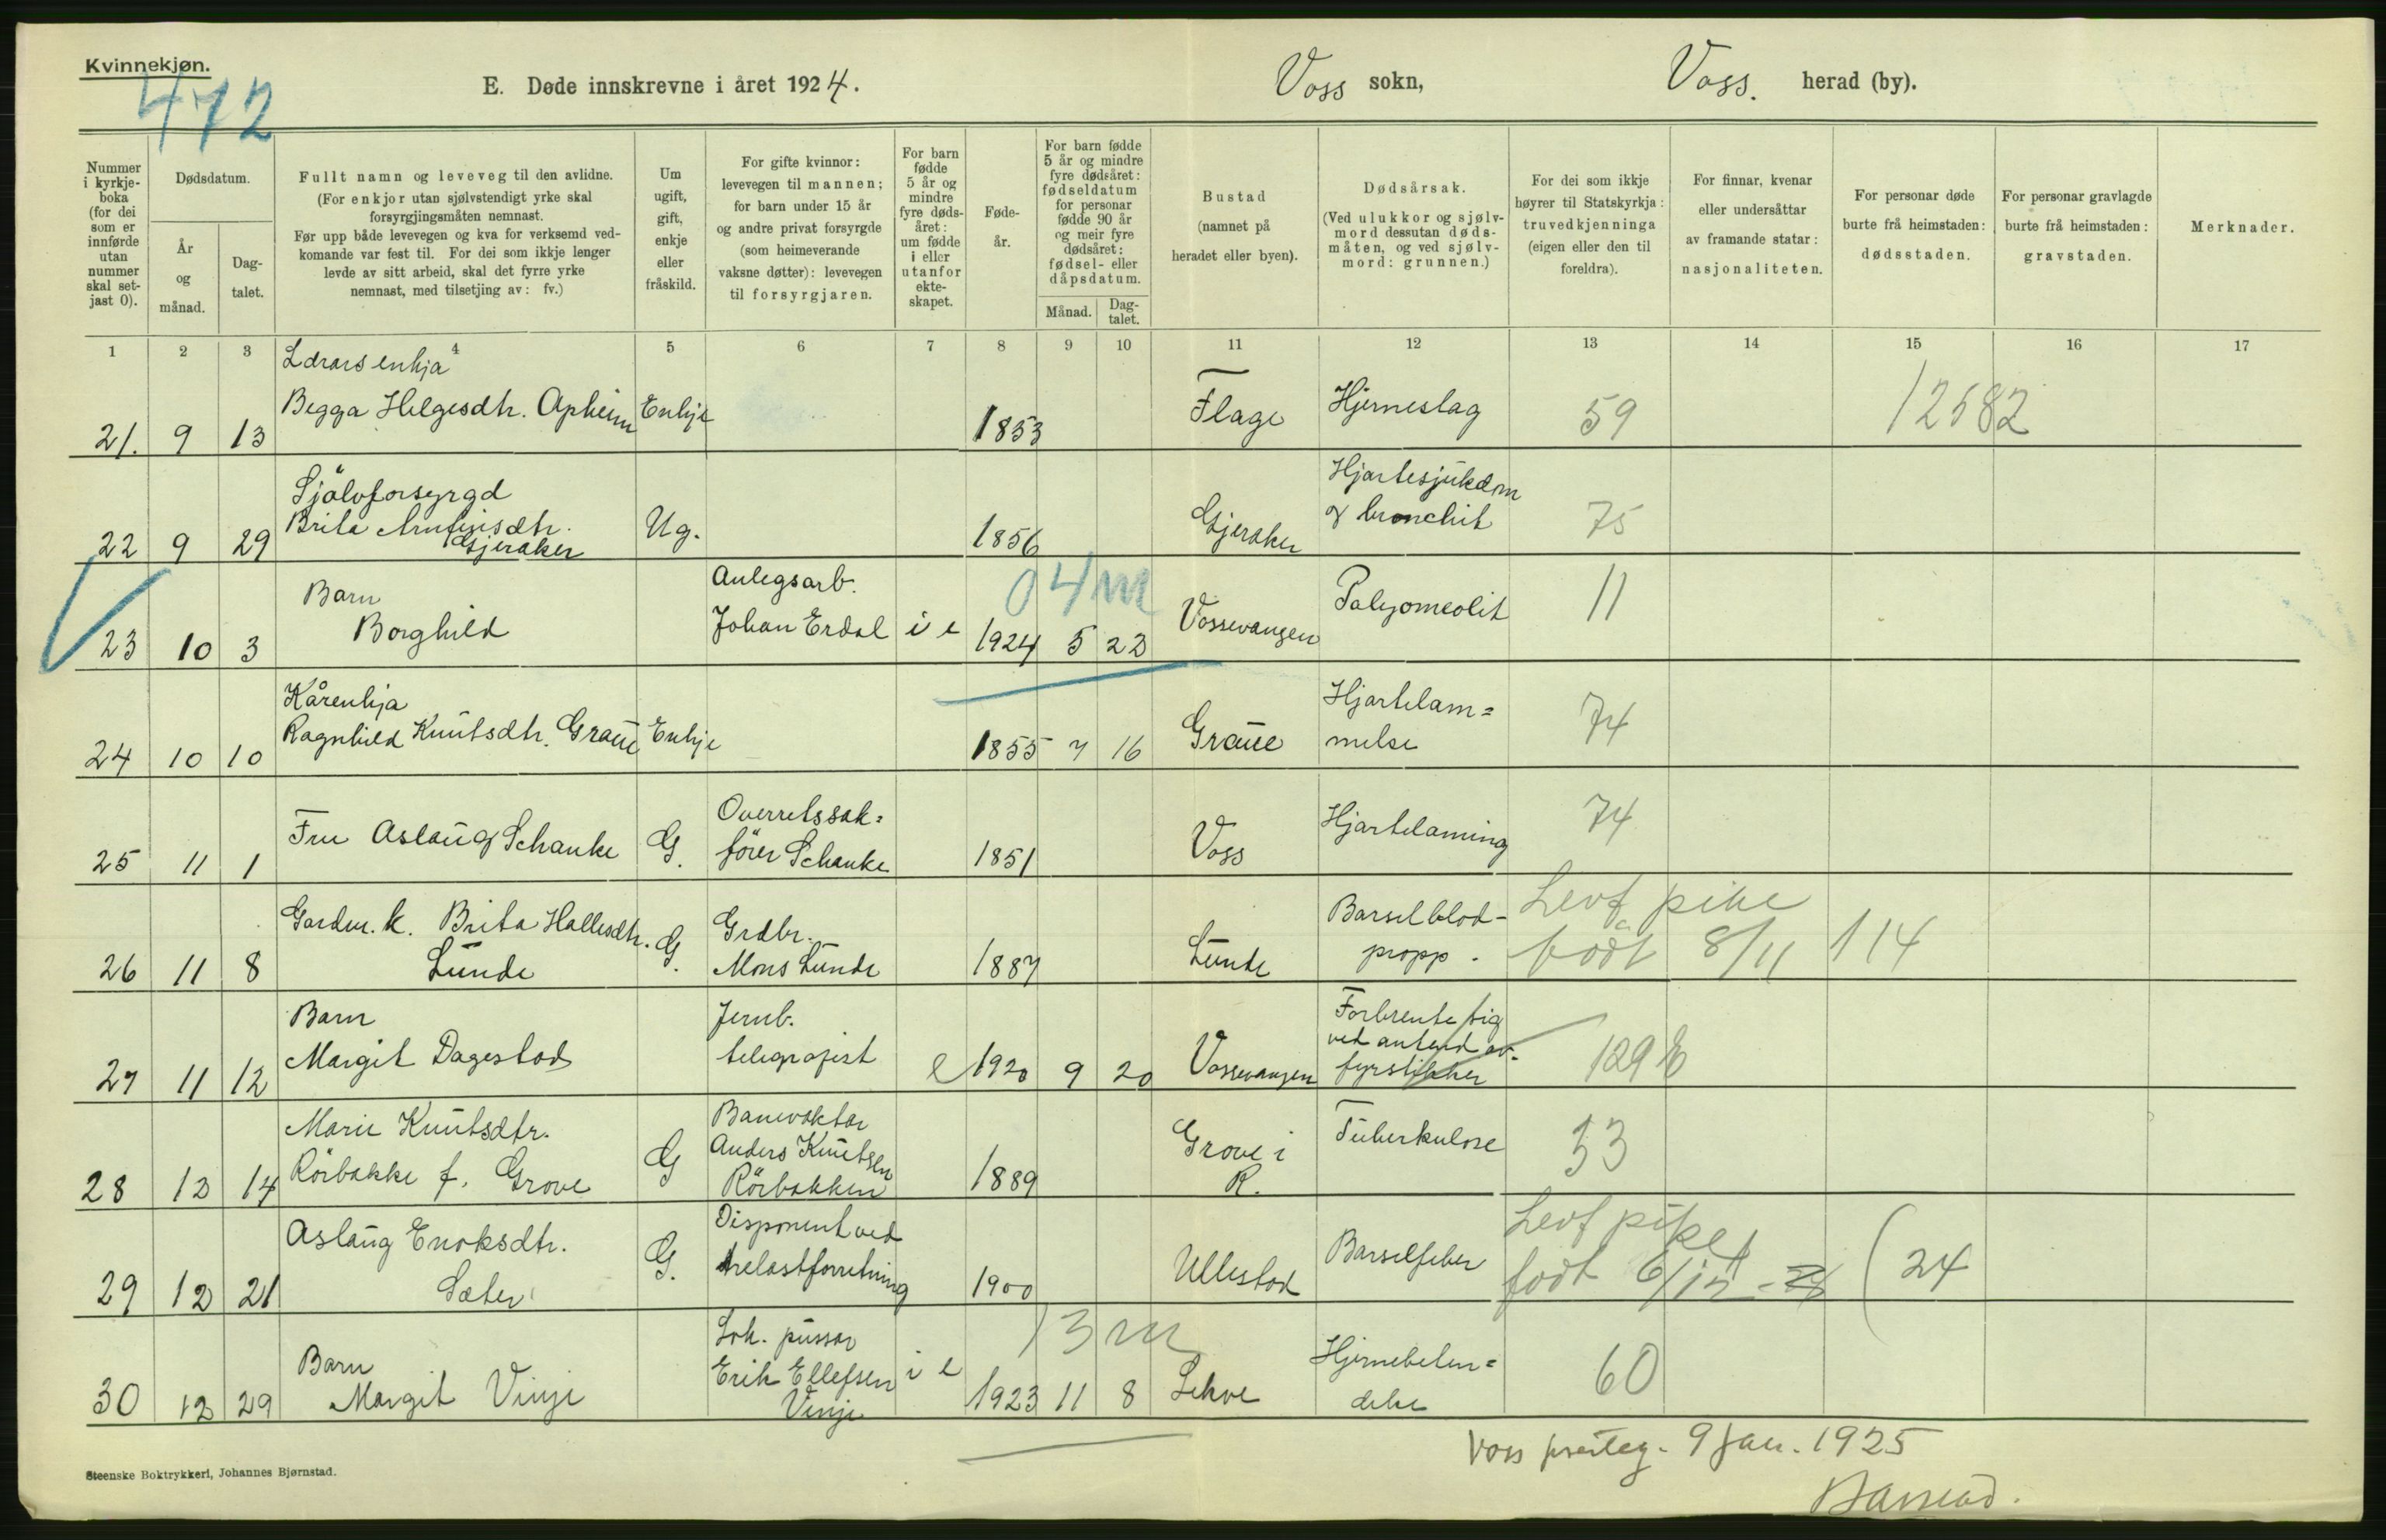 Kvinnekjøn.
472
E. Døde innskrevne i året 1924.
Voss sokn,
Voss. herad (by).
Nummer i kyrkje-boka (for dei som er innførde utan nummer skal set-jast 0).
Dødsdatum.
År og månad.
Dag-talet.
Fullt namn og leveveg til den avlidne.
(For enkjor utan sjølvstendigt yrke skal
forsyrgjingsmåten nemnast.
Før upp både levevegen og kva for verksemd ved-
komande var fest til. For dei som ikkje lenger
levde av sitt arbeid, skal det fyrre yrke
nemnast, med tilsetjing av: fv.)
Um ugift, gift, enkje eller fråskild.
For gifte kvinnor:
levevegen til mannen;
for barn under 15 år
og andre privat forsyrgde
(som heimeverande
vaksne døtter): levevegen
til forsyrgjaren.
For barn fødde 5 år og mindre fyre døds-året: um fødde i eller utanfor ekte-skapet.
Føde-år.
For barn fødde
5 år og mindre
fyre dødsåret:
fødseldatum
for personar
fødde 90 år
og meir fyre
dødsåret:
fødsel- eller
dåpsdatum.
Månad.
Dag-talet.
Bustad
(namnet på
heradet eller byen).
Dødsårsak.
(Ved ulukkor og sjølv-
mord dessutan døds-
måten, og ved sjølv-
mord: grunnen.)
For dei som ikkje
høyrer til Statskyrkja:
truvedkjenninga
(eigen eller den til
foreldra).
For finnar, kvenar
eller undersåttar
av framande statar:
nasjonaliteten.
For personar døde
burte frå heimstaden:
dødsstaden.
For personar gravlagde
burte frå heimstaden:
gravstaden.
Merknader.
1 2 3 4 5 6 7 8 9 10 11 12 13 14 15 16 17
Lærarsenkja
21. 9 13 Begga Helgesdtr. Apheim Enkje 1853 Flage Hjerneslag 59 12582
Sjölvforsyrgd
22 9 29 Brita Arnfinsdtr. Gjeraker Ug. 1856 Gjeraker Hjartesjukdom & bronchit 75
Barn
23 10 3 Borghild Anlegsarb. Johan Erdal i e 1924 5 23 Vossevangen Polyomeolit 11
0 4 m
Kårenkja
24 10 10 Ragnhild Knutsdtr. Graue Enkje 1855 7 16 Graue Hjartelam=melse 74
25 11 1 Fru Aslaug Schanke G. Overretssak=förer Schanke 1851 Voss Hjartelaming 74
26 11 8 Gardm. k. Brita Hallesdtr. Lunde G. Grdbr. Mons Lunde 1887 Lunde Barselblod-propp. Levf pike född 8/11 114
Barn
27 11 12 Margit Dagestad Jernb. telegrafist e 1920 9 20 Vossevangen Forbrente sig ved antend av fyrstikker 129 b
28 12 14 Marie Knutsdtr. Rörbakke f. Grove G Banevaktar Anders Knutsen Rörbakken 1889 Grove i R. Tuberkulose 33
29 12 21 Aslaug Enoksdtr. Sæter G. Disponent ved trelastforretning 1900 Ullestad Barselfeber Levf pike född 6/12 24
Barn
30 12 29 Margit Vinje Lok. pussar Erik Ellefsen Vinje i e 1923 11 8 Lekve Hjernebeten=delse 60
13 m
Voss presteg. 9 Jan. 1925
Steenske Boktrykkeri, Johannes Bjørnstad.